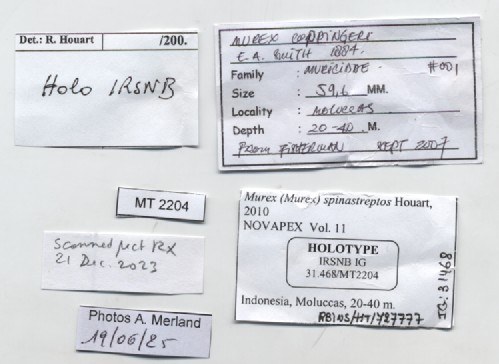 Det.: R. Houart /200.
Holo IRSNB
MUREX COPPINGERI
E.A. SMITH 1884.
Family : MURICIDAE - #001
Size : 59,6 MM.
Locality : MOLUCCAS
Depth : 20-40 M.
FROM FISHERMAN SEPT 2007
MT 2204
Scanned RX
21 Dec. 2023
Photos A. Merland
19/06/25
Murex (Murex) spinastreptos Houart,
2010
NOVAPEX Vol. 11
HOLOTYPE
IRSNB IG
31.468/MT2204
Indonesia, Moluccas, 20-40 m.
RBINS/MT/727777
IG: 31468